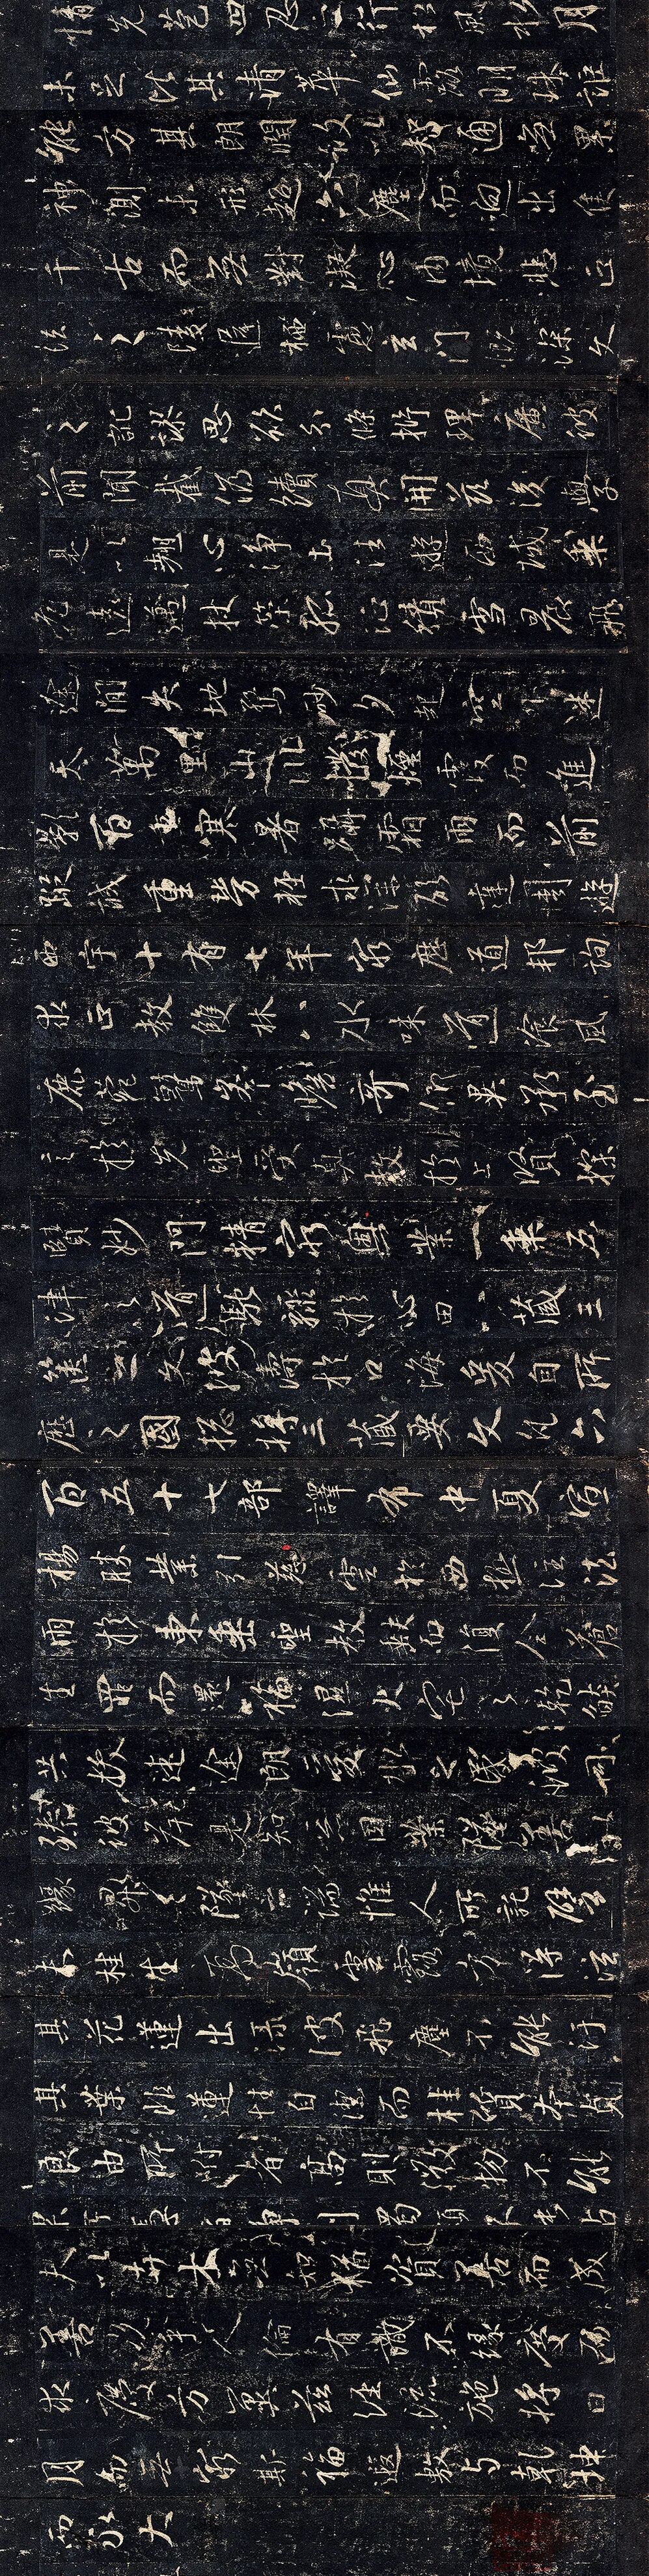 情先苞四忍之行松風水月
未足比其清華仙露明珠詎
能方其朗潤故以智通無累
神測未形超六塵而迥出隻
千古而無對凝心內境悲正
法之陵遲栖慮玄門慨深文
之訛謬思欲分條析理廣彼
前聞截偽續真開茲後學
是以翹心淨土往遊西域乘
危遠邁杖策孤征積雪晨飛
途間失地驚砂夕起空外迷
天萬里山川撥煙霞而進
影百重寒暑躡霜雨而前
蹤誠重勞輕求深願達周遊
西宇十有七年窮歷道邦詢
求正教雙林八水味道飡風
鹿苑鷲峯瞻奇仰異承至
言於先聖受真教於上賢探
賾妙門精窮奧業一乘五
律之道馳驟於心田八藏三
篋之文波濤於口海爰自所
歷之國總將三藏要文凡六
百五十七部譯布中夏宣
揚勝業引慈雲於西極注法
雨於東垂聖教缺而復全蒼
生罪而還福濕火宅之乾焰
共拔迷途朗愛水之昏波同
臻彼岸是知惡因業墜善以
緣昇昇墜之端惟人所託譬
夫桂生高嶺雲露方得泫
其花蓮出淥波飛塵不能污
其葉非蓮性自潔而桂質本貞
良由所附者高則微物不能
累所憑者淨則濁類不能沾
夫以卉木無知猶資善而成
善況乎人倫有識不緣慶而
求慶方冀茲經流施將日
月而無窮斯福遐敷與乾坤
而永大